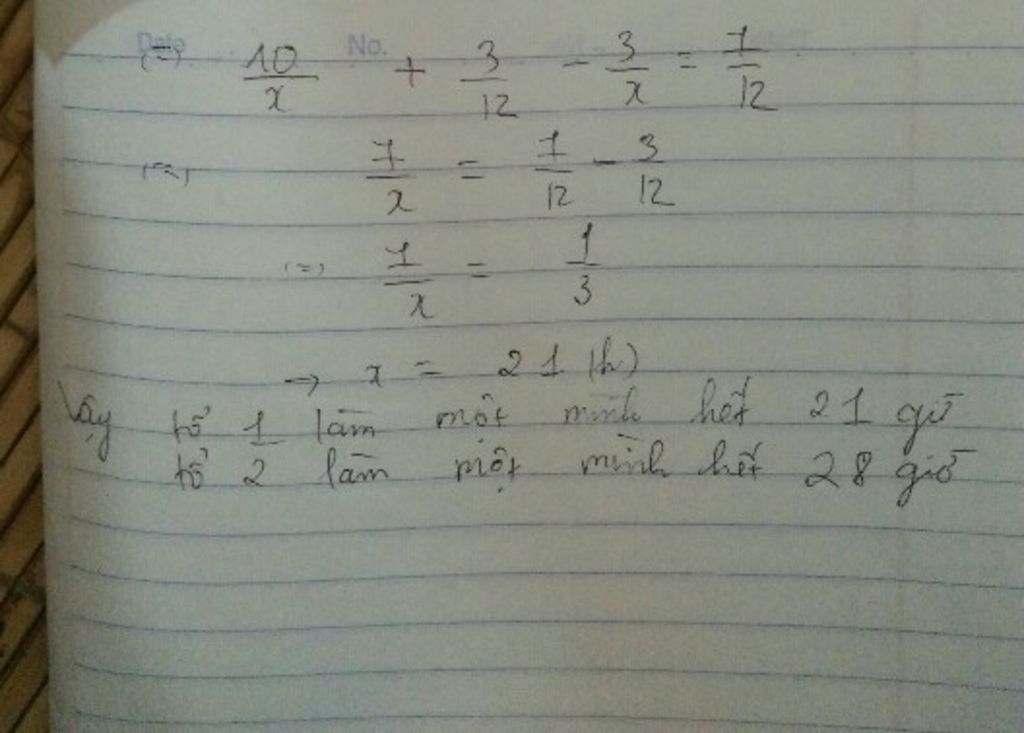 Date No.
(=) 10/x + 3/12 - 3/x = 7/12
(=) 7/x = 7/12 - 3/12
(=) 7/x = 1/3
→ x = 21 (h)
Vậy tổ 1 làm một mình hết 21 giờ
tổ 2 làm một mình hết 28 giờ